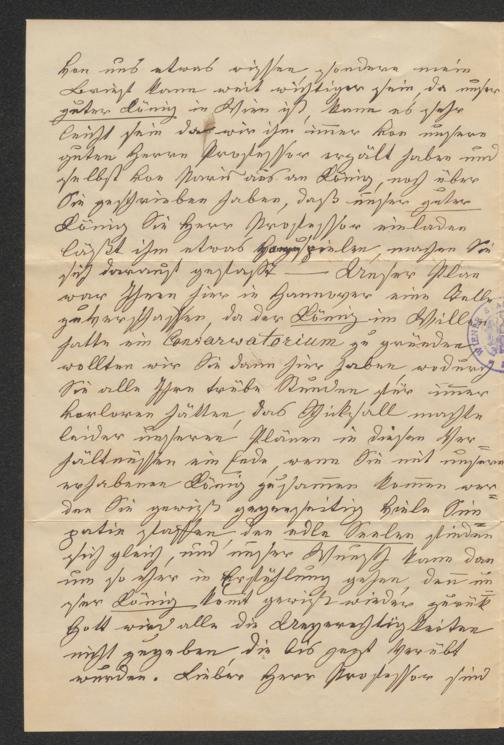 von uns etwas wissen, sondern mein
Brief kann weit wichtiger sein, da unser
guter König in Wien ist kann es sehr
leicht sein das wir ihm imer von unsern
guten Herrn Professor erzält haben und
selbst von Paris aus an König, noch über
Sie geschrieben haben, daß unser guter
König Sie Herr Professor einladen
läßt ihm etwas vorzuspielen, machen Sie
sich darauf gefasst — Unser Plan
war Ihnen hier in Hannover eine Stelle
zu verschaffen, da der König im Willen
hatte ein Conservatorium zu gründen
wollten wir Sie dann hier haben wodurch
Sie alle Ihre trübe Stunden für immer
verloren hätten, das Schicksall machte
leider unseren Plänen in diesen Ver=
hältnüssen ein Ende, wenn Sie mit unsern
erhabenen König zusammen kommen wer=
den Sie gewiß gegenseitig viele Sim=
patie schaffen, den edle Seelen finden
sich gleich, und unser Wunsch kann dan
um so eher in Erfühlung gehen, denn un=
ser König komt gewiß wieder zurük
Gott wird alle die Ungerechtigkeiten
nicht zugeben die bis jezt verübt
wurden. Lieber Herr Professor sind
WIENER